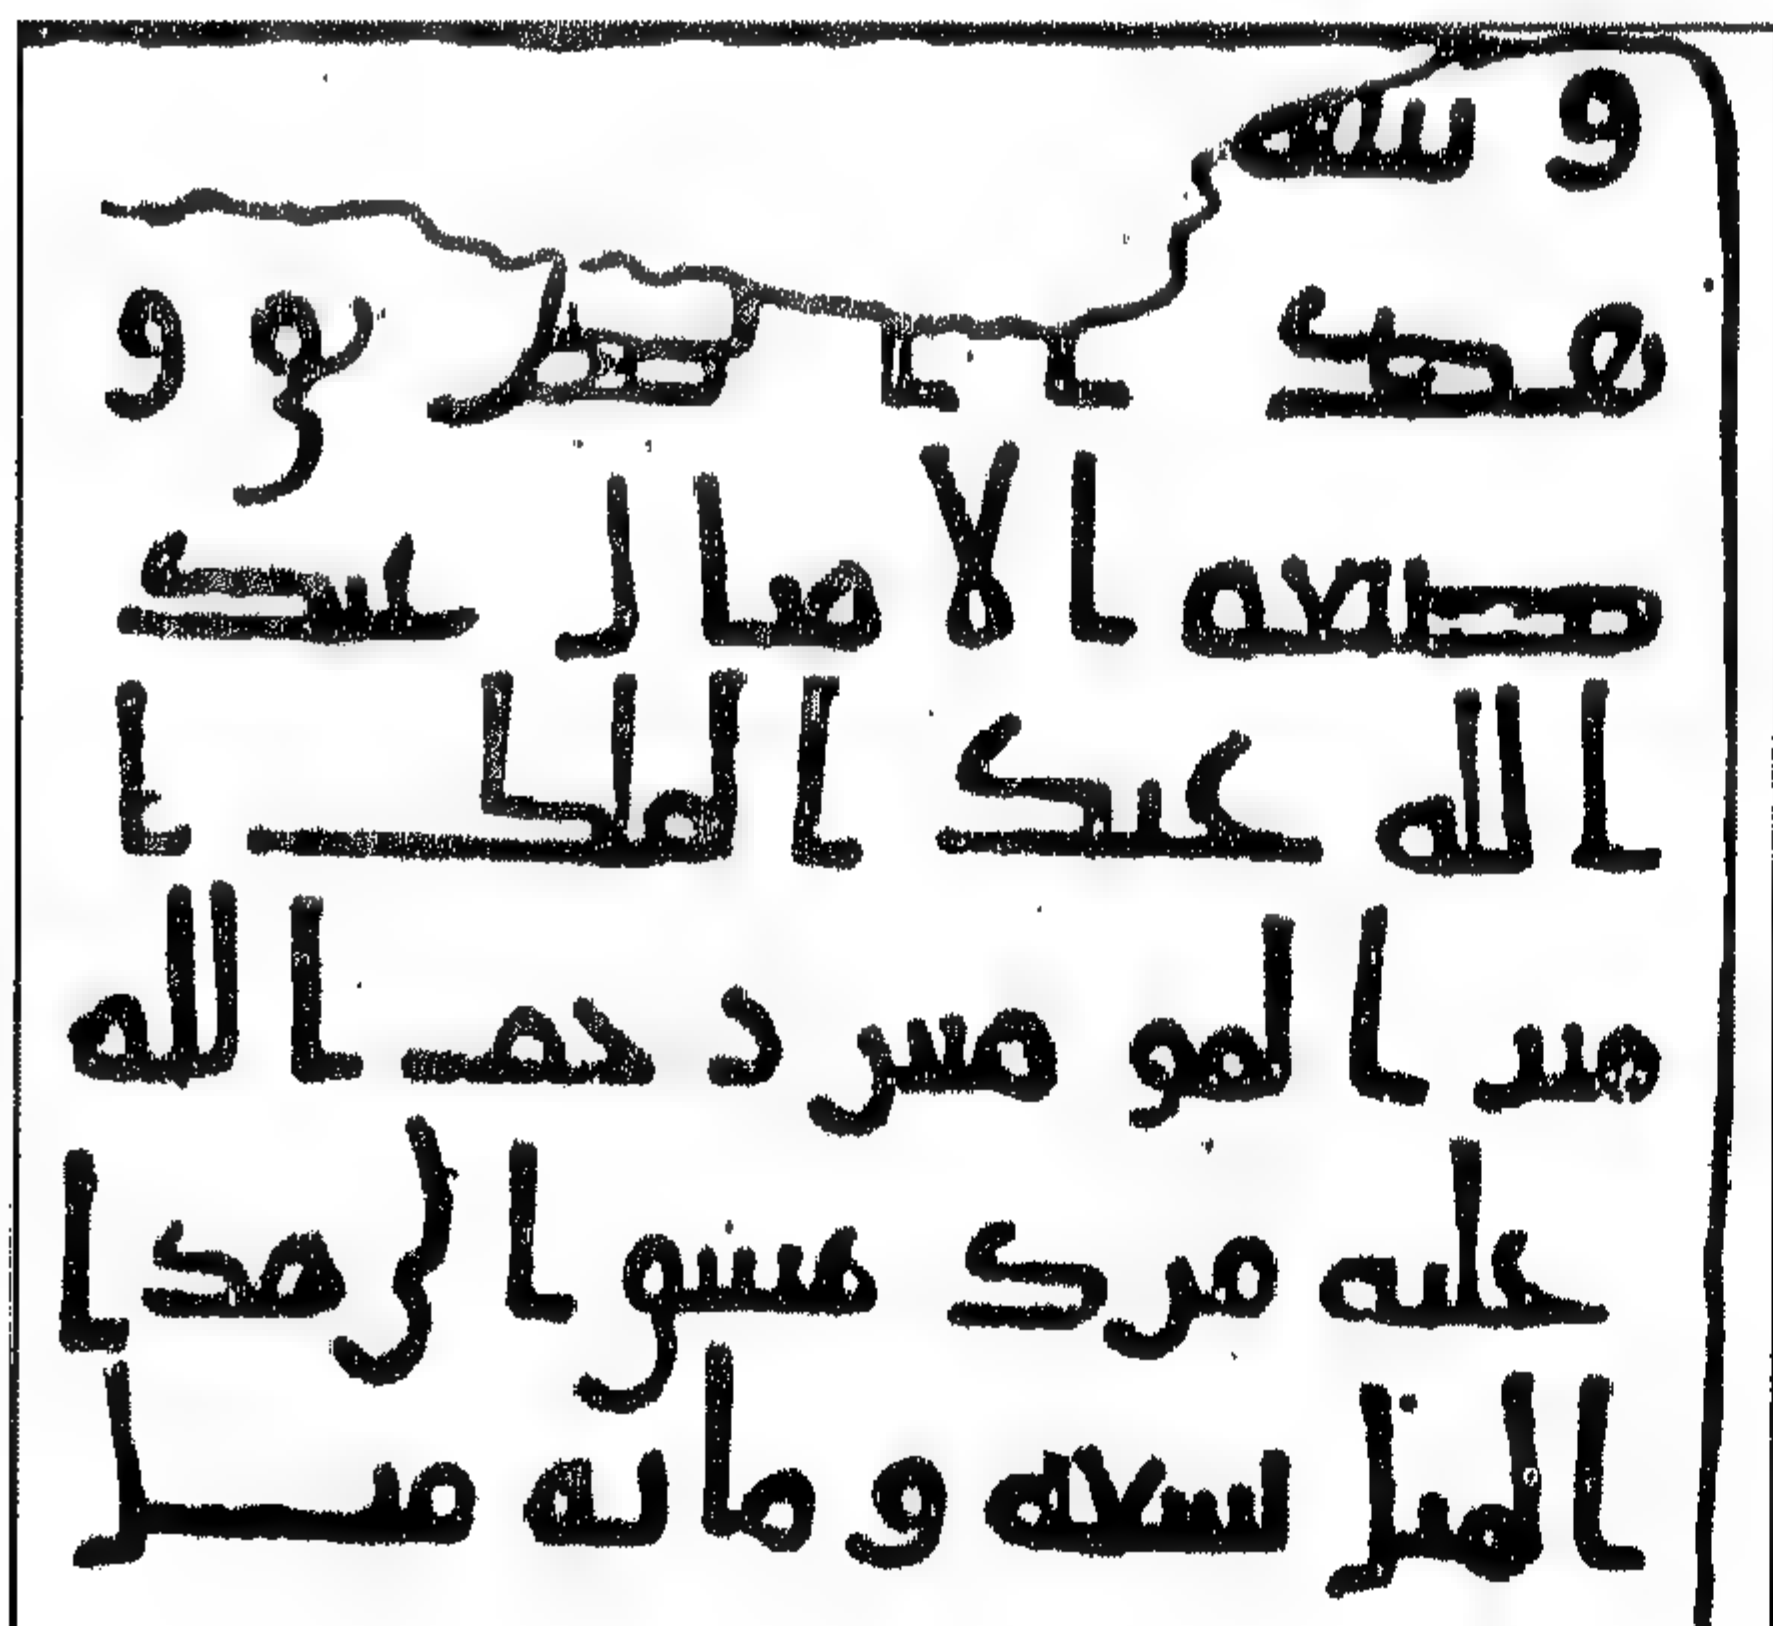 هذا الطريق و
صنعة الاميال عبد
الله عبد الملك ا
مير المومنين رحمت الله
عليه من دمشق الى هذا
الميل تسعة و مائة ميل